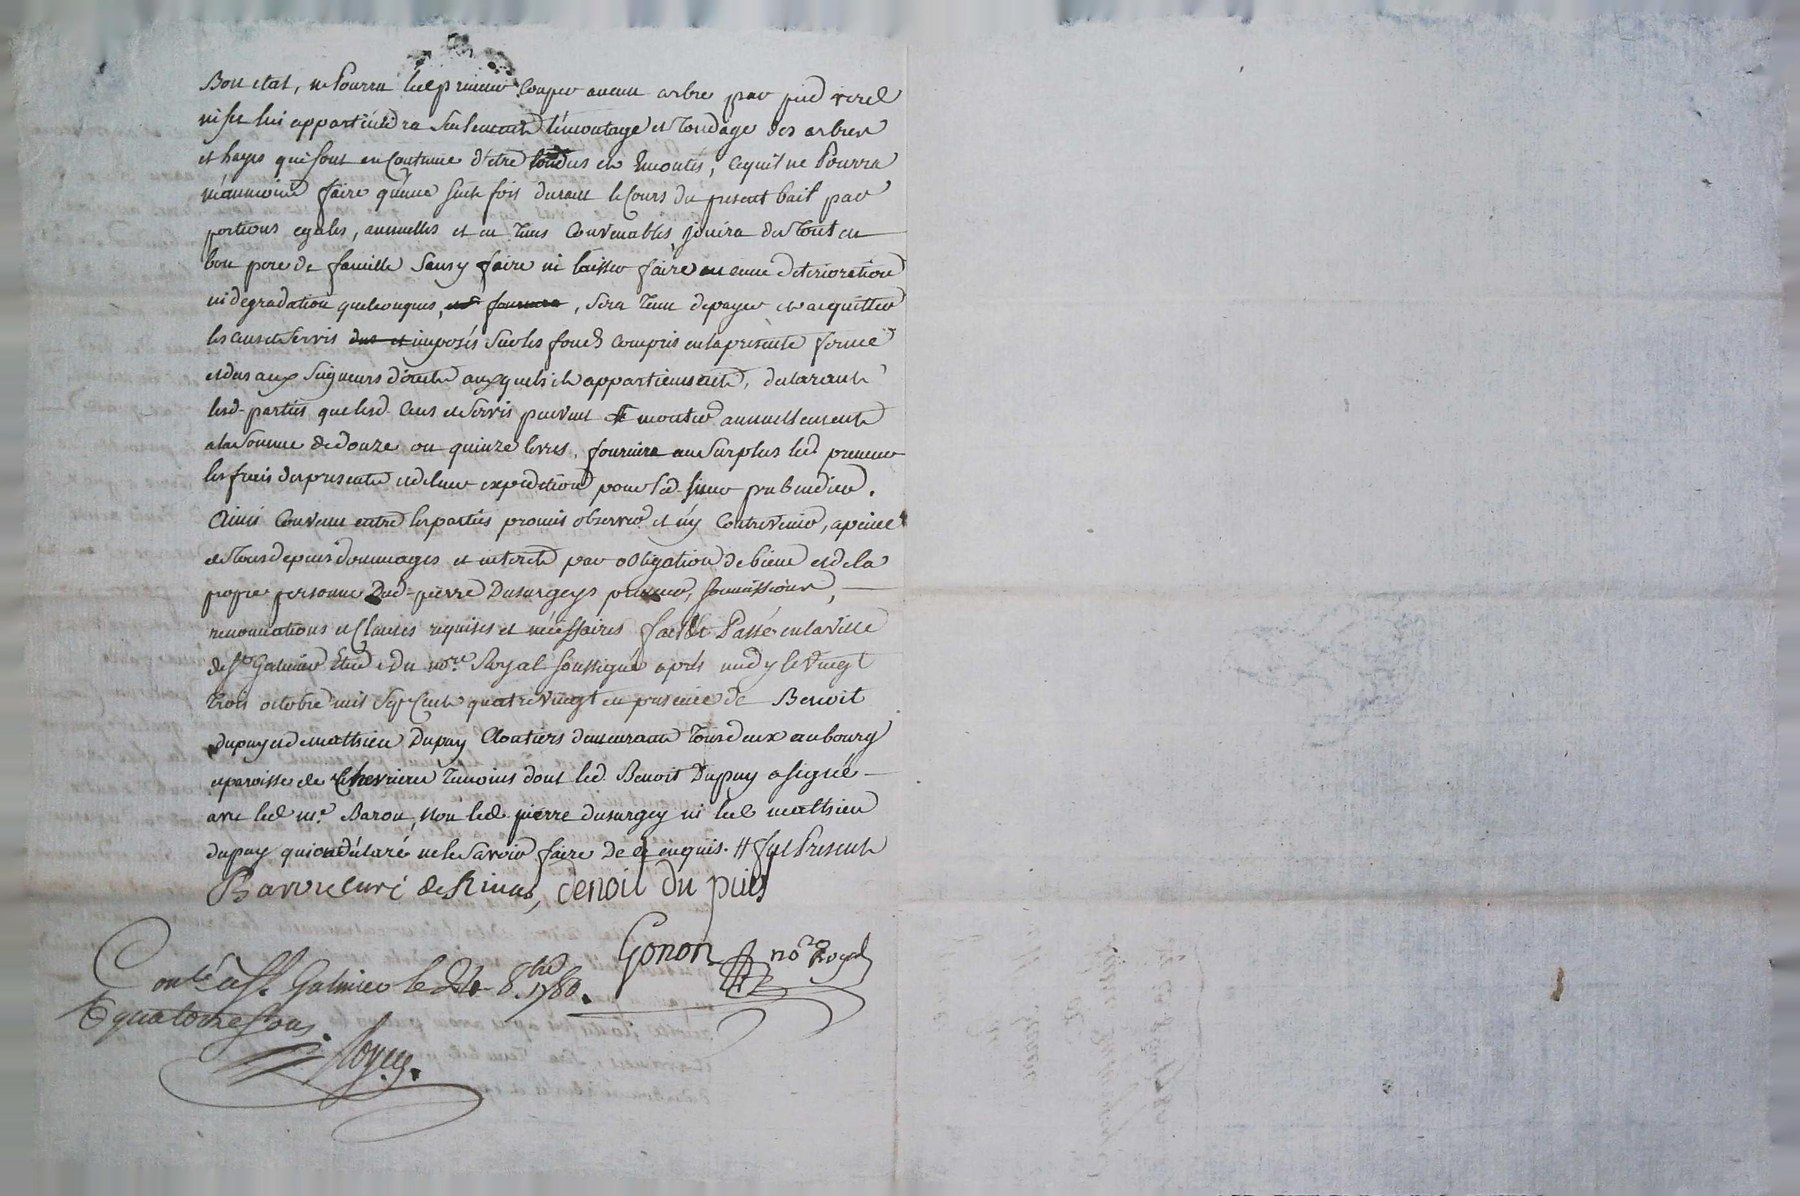 Bon etat, ne Pourra led preneur Couper aucun arbre par pied verd
ni sec lui appartiendra seulement l'émontage et tondage des arbres
et hayes qui sont en Coutume d'etre tondus et Emontés, cequil ne Pourra
néanmoins faire qu'une seule fois durant le Cours du present bail par
portions egales, annuelles et en tems Convenables, jouira du tout en
bon pere de famille sans y faire ni laisser faire aucune deterioration
ni degradation quelconques, , sera tenu de payer et acquitter
les cens et servis dus et imposés sur les fonds compris en la presente ferme
et dus aux Seigneurs directs auxquels ils appartiennent, declarant
lesd. parties que lesd. Cens et servis peuvent monter annuellement
a la Somme de douze ou quinze livres, fournira au Surplus led. preneur
les frais des presentes et de leur expedition pour led. sieur prebendier.
Ainsi Convenu entre les parties promis observer et n'y Contrevenir, a peine
de tous depens dommages et interets par obligation de biens et de la
propre personne dud. pierre Dusurgeys preneur, soumissions,
renonciations et Clauses requises et nécessaires fait et Passé en la ville
de St Galmier Etude du nore. Royal soussigné après midy le vingt
trois octobre mil Sept Cent quatre vingt en presence de Benoit
dupuy et de mathieu Dupuy Cloutiers demeurant tous deux au bourg
et paroisse de Chevrieres temoins dont led. Benoit Dupuy a signé
avec led mr. Baron, non led. pierre dusurgey ni led mathieu
dupuy qui ont déclaré ne le savoir faire de ce enquis. // fut Present
Baron curé de Rivas, benoit du puis
Gonon nore Royal
Conlé a St. Galmier le 24 8bre 1780.
quatorze sous.